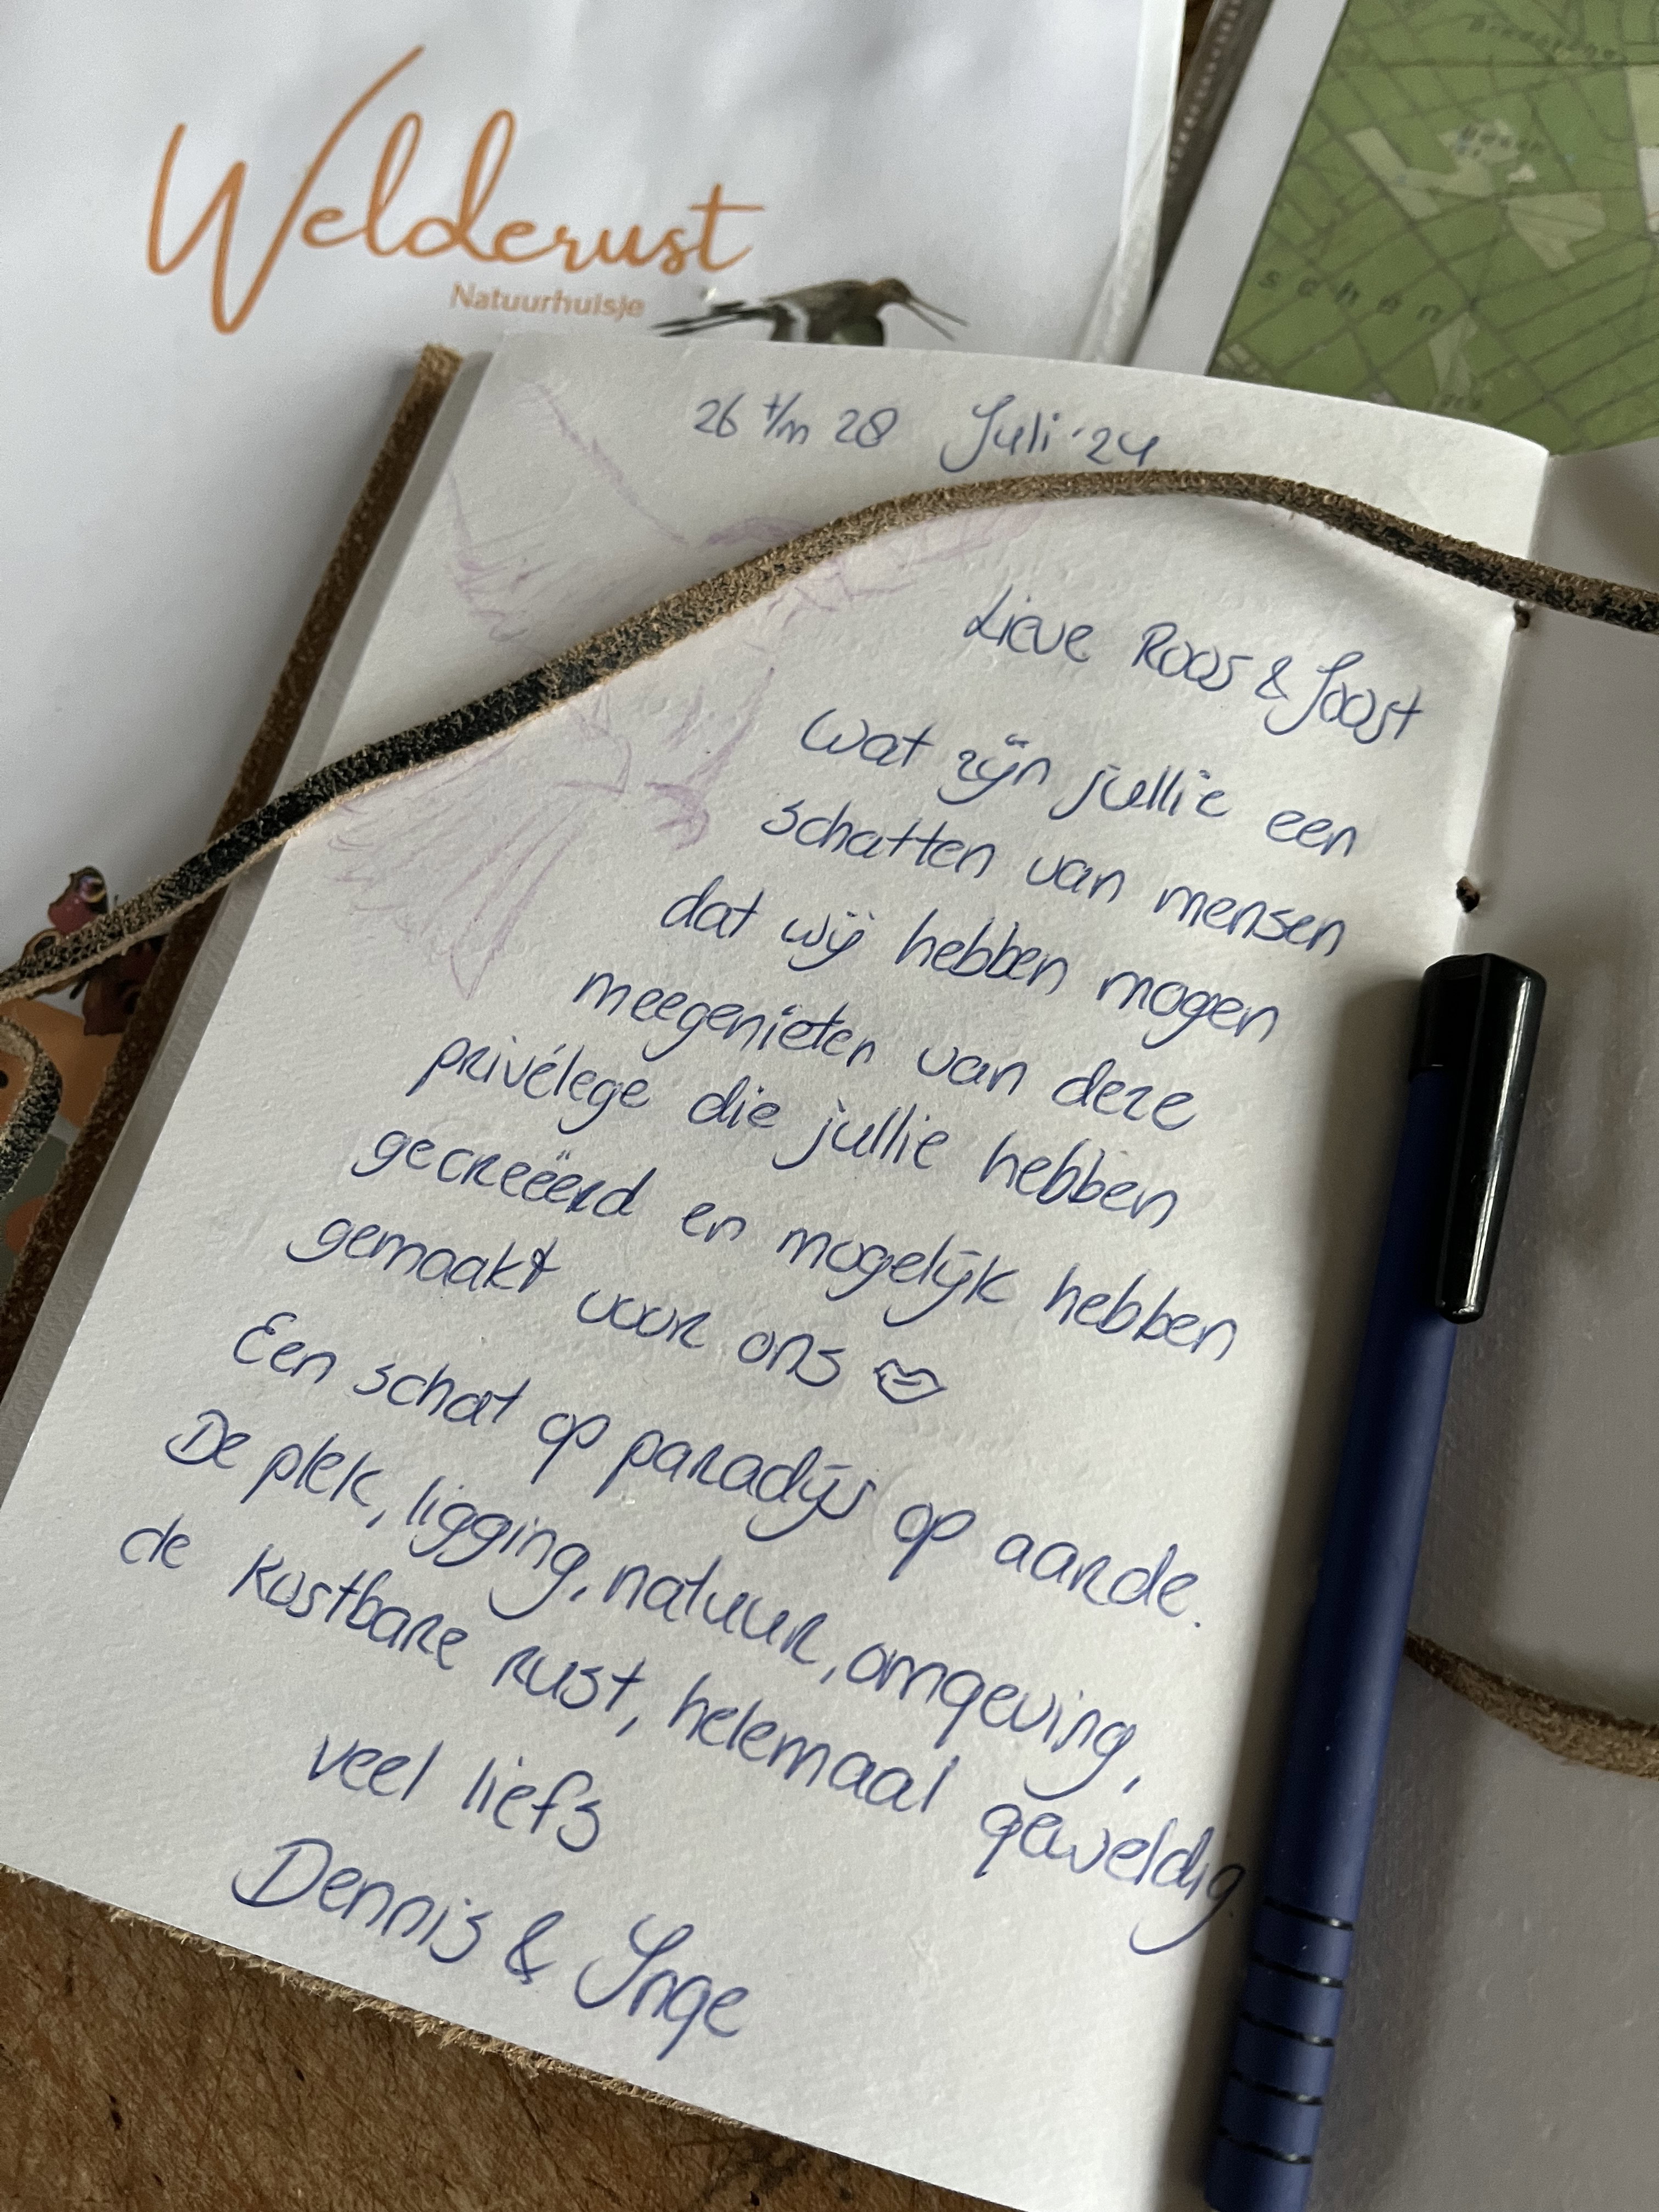 Welderust
Natuurhuisje
schen
26 t/m 28 Juli '24
Lieve Roos & Joost
Wat zijn jullie een
schatten van mensen
dat wij hebben mogen
meegenieten van deze
privélege die jullie hebben
gecreëerd en mogelijk hebben
gemaakt voor ons
Een schat op paradijs op aarde.
De plek, ligging, natuur, omgeving,
de kostbare rust, helemaal geweldig.
veel liefs
Dennis & Inge